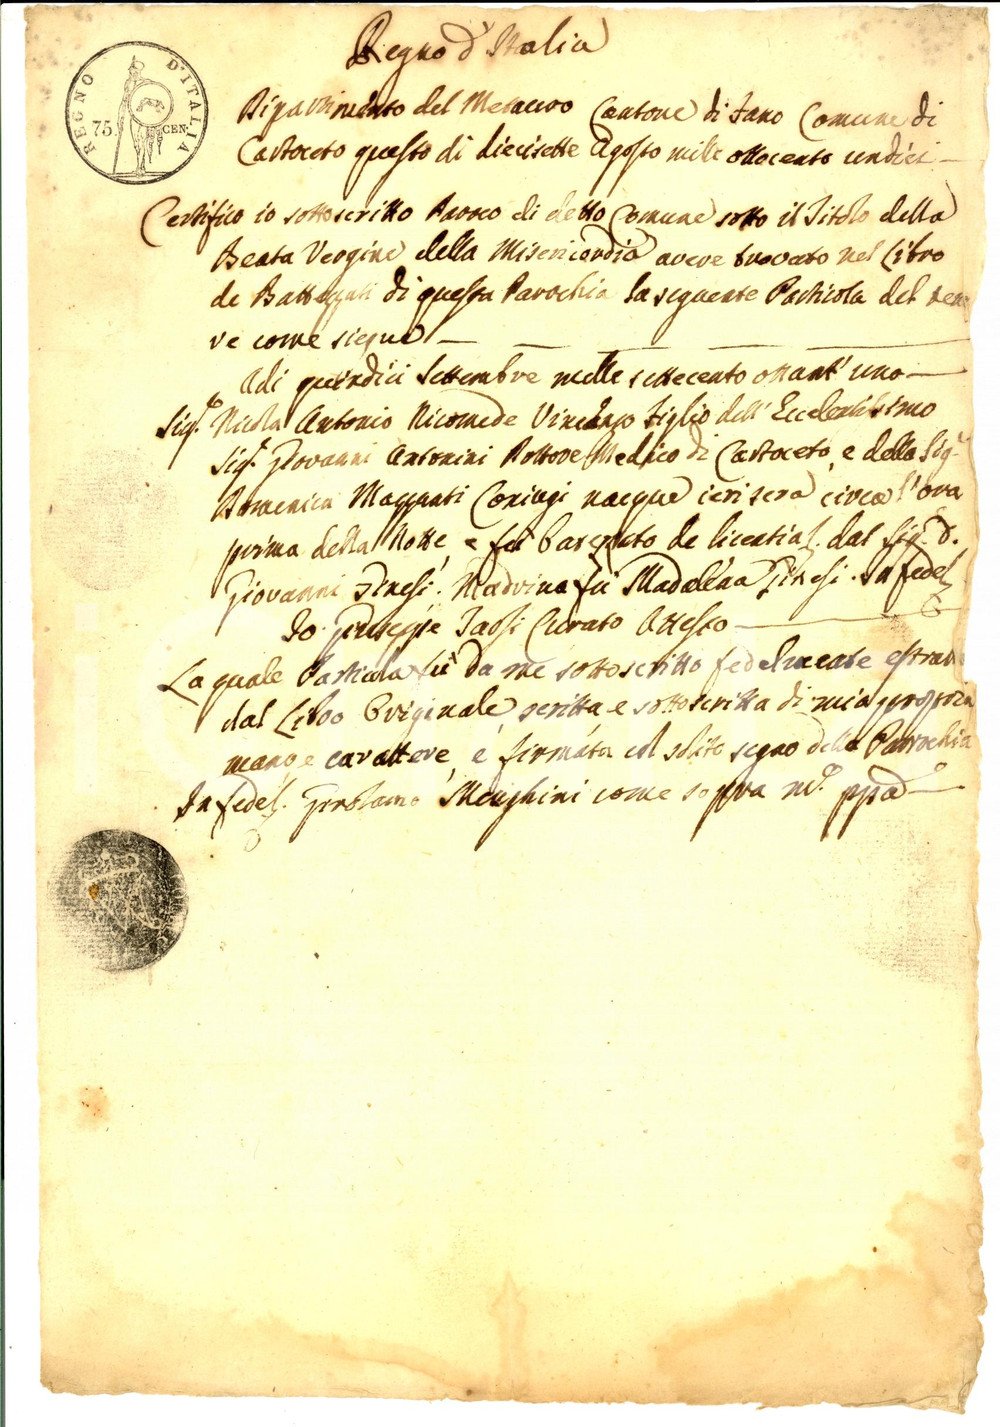 Regno d'Italia
REGNO D'ITALIA
75. CEN.
Dipartimento del Metauro Cantone di Fano Comune di
Cartoceto questo dì diecisette Agosto mille ottocento undici
Certifico io sottoscritto Paroco di detto Comune sotto il Titolo della
Beata Vergine della Misericordia avere trovato nel Libro
de Battezzati di questa Parochia la seguente Particola del teno
re come siegue
Adi quindici Settembre mille settecento ottant' uno
Sig.r Nicola Antonio Nicomede Vincenzo figlio dell' Eccelentissimo
Sig.r Giovanni Antonini Dottore Medico di Cartoceto, e della Sig.ra
Domenica Coniugi nacque ieri sera circa l'ora
prima della Notte, e fù Battezzato de licentia dal Sig.r D.
Giovanni Ginesi. Madrina fù Madalena Ginesi. In fede
Io Giuseppe Curato Attesto
La quale Particola fù da me sottoscritto fedelmente estratta
dal Libro Originale scritta e sottoscritta di mia propria
mano e carattere, e firmata col solito segno della Parrochia
In fede. Girolamo Menghini come sopra m.o pp.a